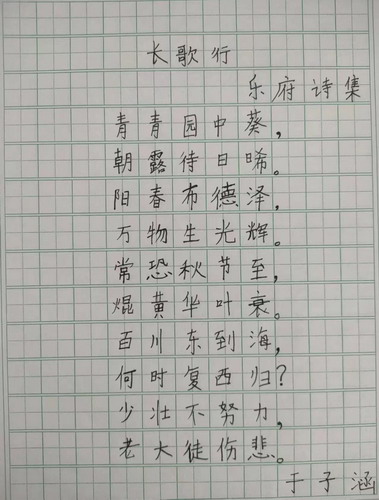 长歌行
乐府诗集
青青园中葵，
朝露待日晞。
阳春布德泽，
万物生光辉。
常恐秋节至，
焜黄华叶衰。
百川东到海，
何时复西归？
少壮不努力，
老大徒伤悲。
于子涵